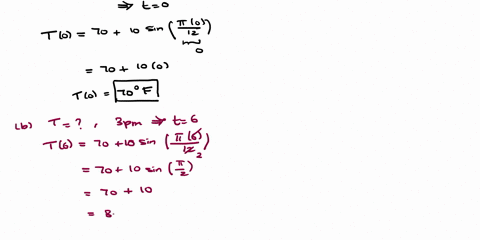 ⇒ t=0
T(0) = 70 + 10 sin (π(0)/12)
0
= 70 + 10(0)
T(0) = 70°F
(b) T=? , 3pm ⇒ t=6
T(6) = 70 +10 sin (π(6)/12) 2
= 70+ 10 sin (π/2)
= 70 + 10
= 8